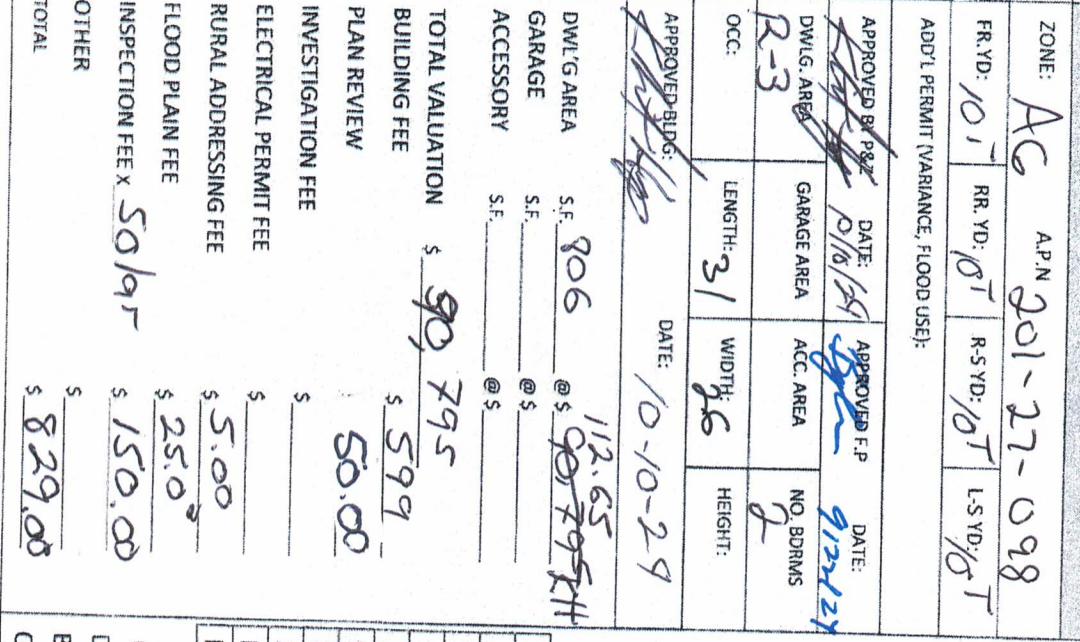 ZONE: AG A.P.N 201-27-098
FR.YD: 10' RR. YD: 10' R-S YD: 10' L-S YD: 10'
ADD'L PERMIT (VARIANCE, FLOOD USE):
APPROVED BY P&Z DATE: APPROVED F.P DATE:
DWLG. AREA GARAGE AREA ACC. AREA NO. BDRMS
R-3 2
OCC: LENGTH: 31 WIDTH: 26 HEIGHT:
APPROVED BLDG: DATE: 10-10-24
112.65
DWL'G AREA S.F. 806 @ $ 90,795 KH
GARAGE S.F. @ $
ACCESSORY S.F. @ $
TOTAL VALUATION $ 90,795
BUILDING FEE $ 599
PLAN REVIEW 50.00
INVESTIGATION FEE $
ELECTRICAL PERMIT FEE $
RURAL ADDRESSING FEE $ 5.00
FLOOD PLAIN FEE $ 25.00
INSPECTION FEE x 50/ $ 150.00
OTHER $
TOTAL $ 829.00